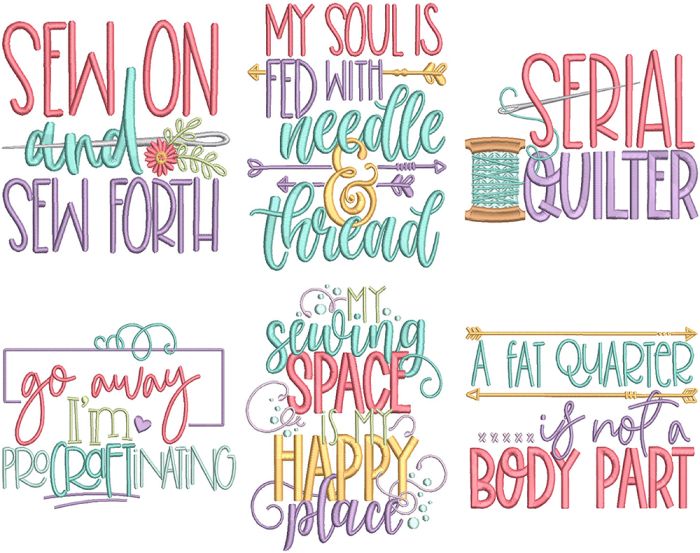 SEW ON
and
SEW FORTH
MY SOUL IS
FED WITH
needle
&
thread
SERIAL
QUILTER
go away
I'm
PROCRAFTINATING
MY
sewing
SPACE
IS MY
HAPPY
place
A FAT QUARTER
is not a
BODY PART